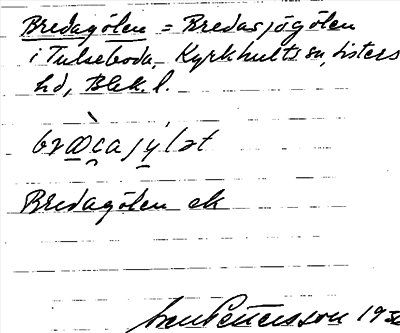 Bredagölen = Bredasjögölen
i Tulseboda, Kyrkhults sn, Listers
hd, Blek. l.
Bredagölen ek
Pettersson 19